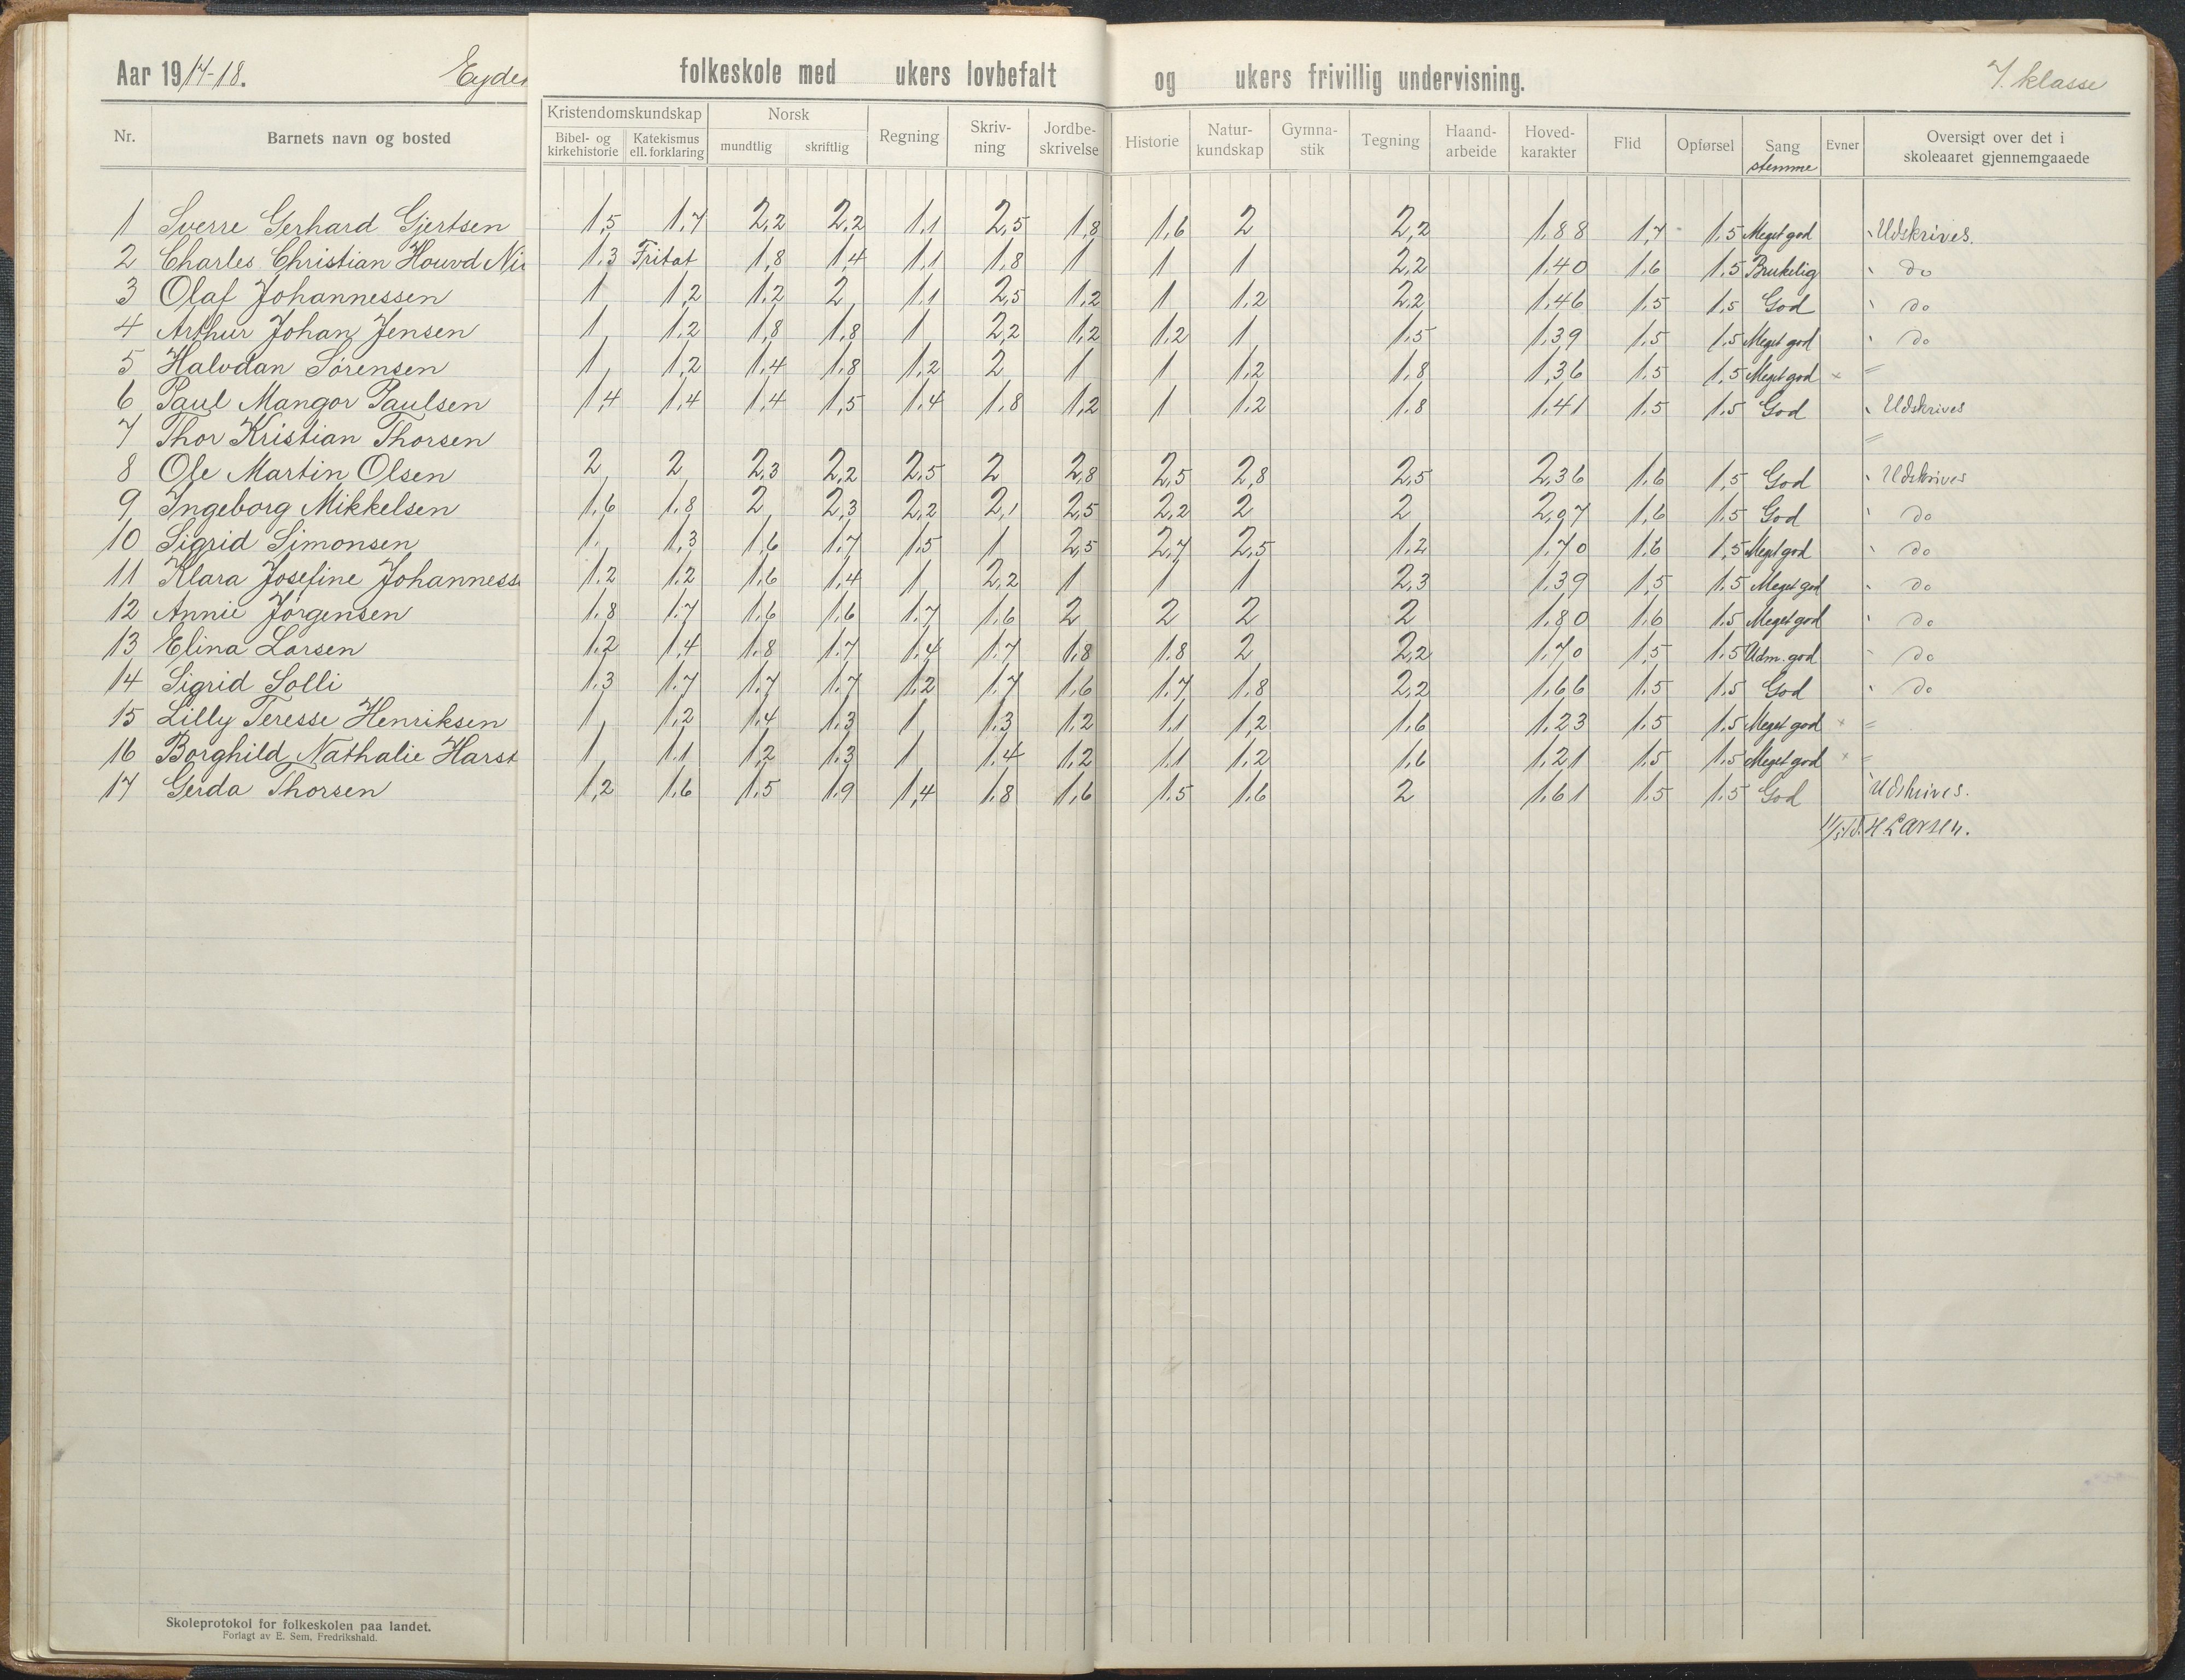 Aar 1917-18. Eyde folkeskole med ukers lovbefalt og ukers frivillig undervisning. 7. klasse
Nr. Barnets navn og bosted Kristendomskundskap Bibel- og kirkehistorie Katekismus ell. forklaring Norsk mundtlig skriftlig Regning Skriv-ning Jordbe-skrivelse Historie Natur-kundskap Gymna-stik Tegning Haand-arbeide Hoved-karakter Flid Opførsel Sang stemme Evner Oversigt over det i skoleaaret gjennemgaaede
1 Sverre Gerhard Gjertsen 1,5 1,7 2,2 2,2 1,1 2,5 1,8 1,6 2 2,2 1,88 1,7 1,5 Meget god Udskrives.
2 Charles Christian Houvd Ni 1,3 Fritat 1,8 1,4 1,1 1,8 1 1 1 2,2 1,40 1,6 1,5 Brukelig do
3 Olaf Johannessen 1 1,2 1,2 2 1,1 2,5 1,2 1 1,2 2,2 1,46 1,5 1,5 God do
4 Arthur Johan Jensen 1 1,2 1,8 1,8 1 2,2 1,2 1,2 1 1,5 1,39 1,5 1,5 Meget god do
5 Halvdan Sørensen 1 1,2 1,4 1,8 1,2 2 1 1 1,2 1,8 1,36 1,5 1,5 Meget god × =
6 Paul Mangor Paulsen 1,4 1,4 1,4 1,5 1,4 1,8 1,2 1 1,2 1,8 1,41 1,5 1,5 God Udskrives
7 Thor Kristian Thorsen =
8 Ole Martin Olsen 2 2 2,3 2,2 2,5 2 2,8 2,5 2,8 2,5 2,36 1,6 1,5 God Udskrives
9 Ingeborg Mikkelsen 1,6 1,8 2 2,3 2,2 2,1 2,5 2,2 2 2 2,07 1,6 1,5 God do
10 Sigrid Simonsen 1 1,3 1,6 1,7 1,5 1 2,5 2,7 2,5 1,2 1,70 1,6 1,5 Meget god do
11 Klara Josefine Johanness 1,2 1,2 1,6 1,4 1 2,2 1 1 1 2,3 1,39 1,5 1,5 Meget god do
12 Annie Jørgensen 1,8 1,7 1,6 1,6 1,7 1,6 2 2 2 2 1,80 1,6 1,5 Meget god do
13 Elina Larsen 1,2 1,4 1,8 1,7 1,4 1,7 1,8 1,8 2 2,2 1,70 1,5 1,5 Udm. god do
14 Sigrid Solli 1,3 1,7 1,7 1,7 1,2 1,7 1,6 1,7 1,8 2,2 1,66 1,5 1,5 God do
15 Lilly Teresse Henriksen 1 1,2 1,4 1,3 1 1,3 1,2 1,1 1,2 1,6 1,23 1,5 1,5 Meget god × =
16 Borghild Nathalie Harst 1 1,1 1,2 1,3 1 1,4 1,2 1,1 1,2 1,6 1,21 1,5 1,5 Meget god × =
17 Gerda Thorsen 1,2 1,6 1,5 1,9 1,4 1,8 1,6 1,5 1,6 2 1,61 1,5 1,5 God Udskrives.
H Larsen.
Skoleprotokol for folkeskolen paa landet.
Forlagt av E. Sem, Fredrikshald.